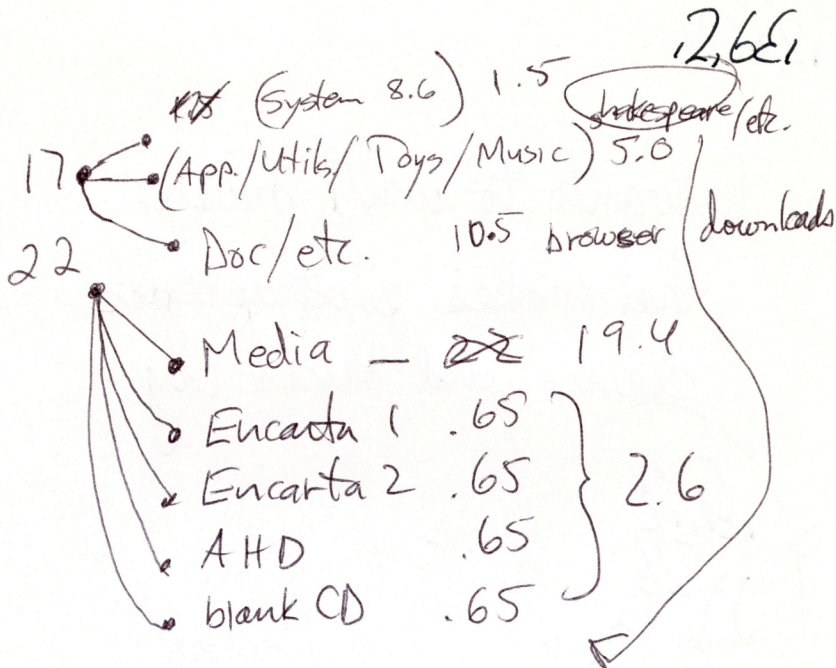 (System 8.6) 1.5 shakespeare/etc.
17 (App./Utils/Toys/Music) 5.0
Doc/etc. 10.5 browser downloads
22
Media — 19.4
Encarta 1 .65
Encarta 2 .65 2.6
AHD .65
blank CD .65